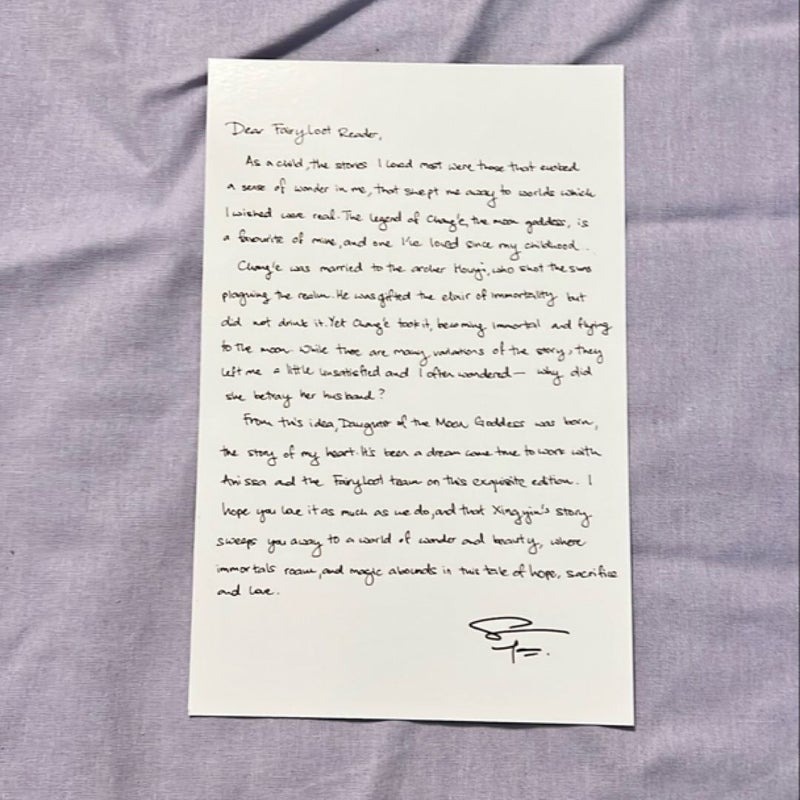 Dear FairyLoot Reader,
As a child, the stories I loved most were those that evoked
a sense of wonder in me, that swept me away to worlds which
I wished were real. The legend of Chang'e, the moon goddess, is
a favourite of mine, and one I've loved since my childhood.
Chang'e was married to the archer Houyi, who shot the suns
plaguing the realm. He was gifted the elixir of immortality but
did not drink it. Yet Chang'e took it, becoming immortal and flying
to the moon. While there are many variations of the story, they
left me a little unsatisfied and I often wondered — why did
she betray her husband?
From this idea, Daughter of the Moon Goddess was born,
the story of my heart. It's been a dream come true to work with
Anissa and the FairyLoot team on this exquisite edition. I
hope you love it as much as we do, and that Xingyin's story
sweeps you away to a world of wonder and beauty, where
immortals roam, and magic abounds in this tale of hope, sacrifice
and love.